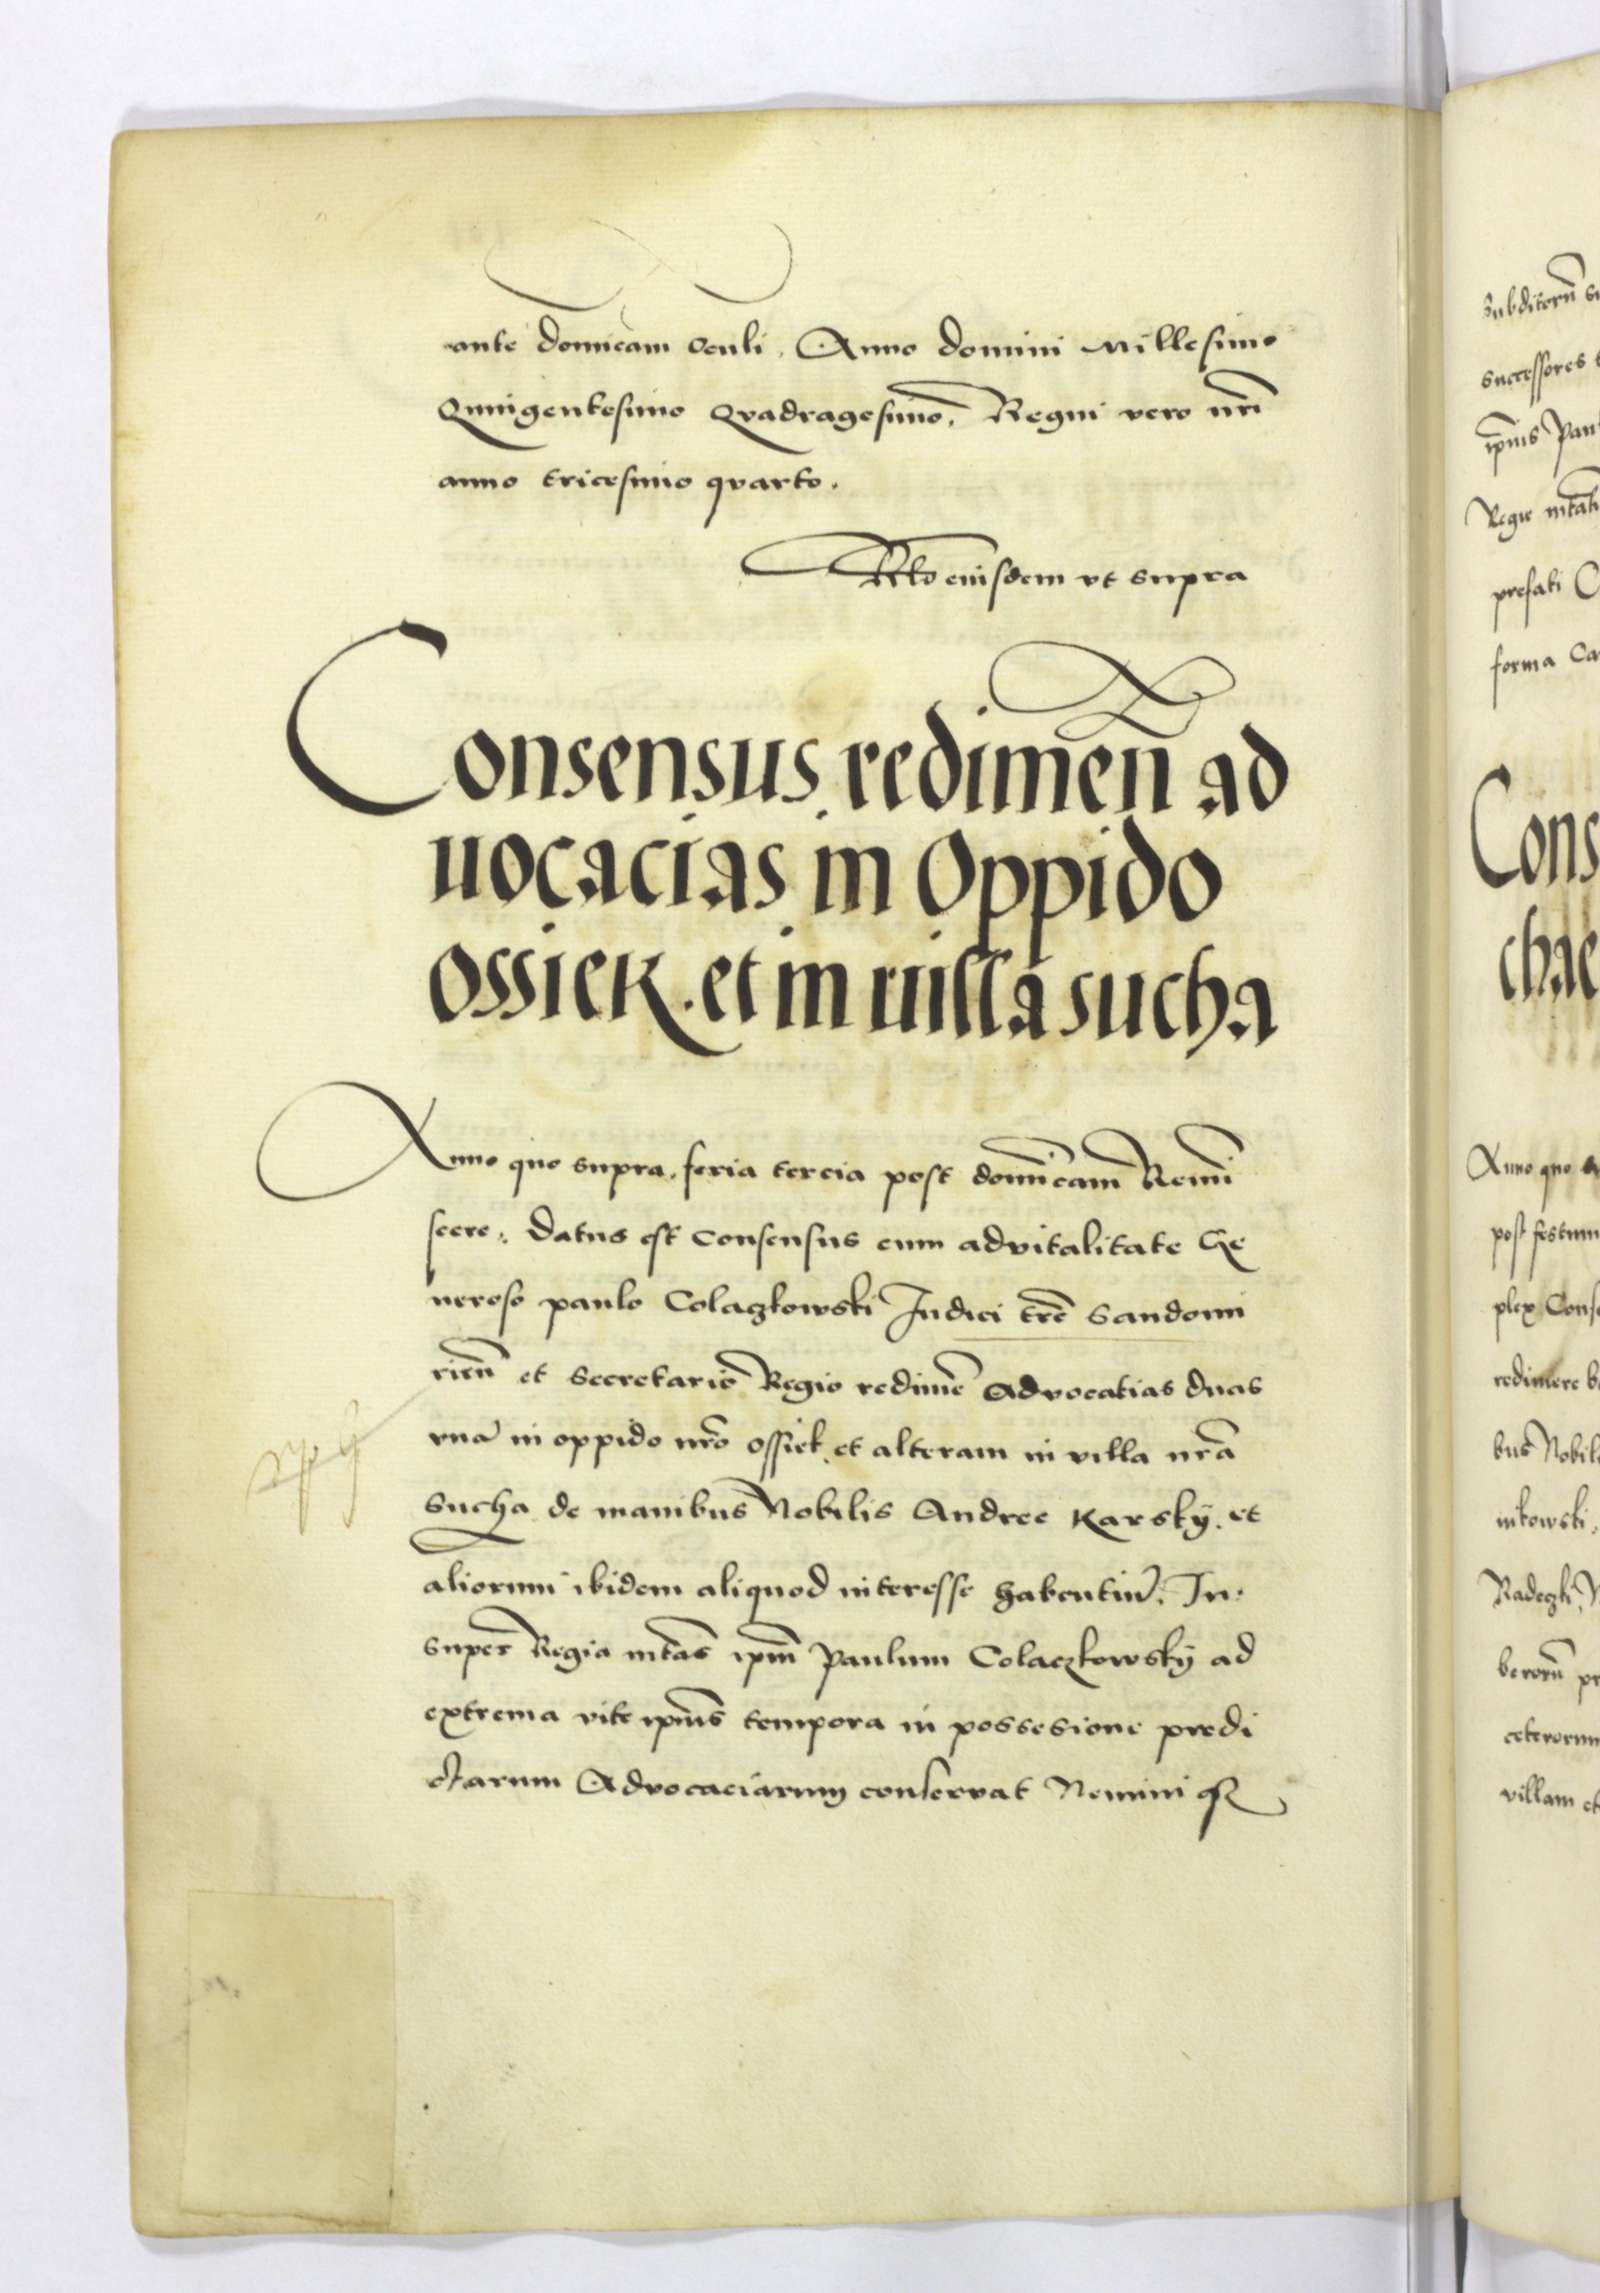 ante dominicam Oculi. Anno domini Millesimo
Quingentesimo Quadragesimo. Regni vero nri
anno tricesimo quarto.
Rlo eiusdem vt supra
Consensus redimen ad
uocacias in Oppido
ossiek. et in uilla sucha
Anno quo supra. feria tercia post dominicam Remi
scere. Datus est Consensus cum advitalitate Ge
neroso paulo Colaczkowski Judici tre Sandomi
rien et Secretario Regio redime Advocatias duas
vna in oppido nro ossiek. et alteram in villa nra
Sucha de manibus Nobilis Andree Karsky. et
aliorum ibidem aliquod interesse habentiu. In
super Regia mtas ipm Paulum Colaczkowsky ad
extrema vite ipius tempora in possesione predi
ctarum Advocaciarum conservat Nemini
subditoru
successores
ipius
Regie
prefati
forma
Cons
chae
Anno quo
post festum
plex Cons
redimere
bus Nobil
inkowski
Radeczki
beroru
ceterorum
villam et